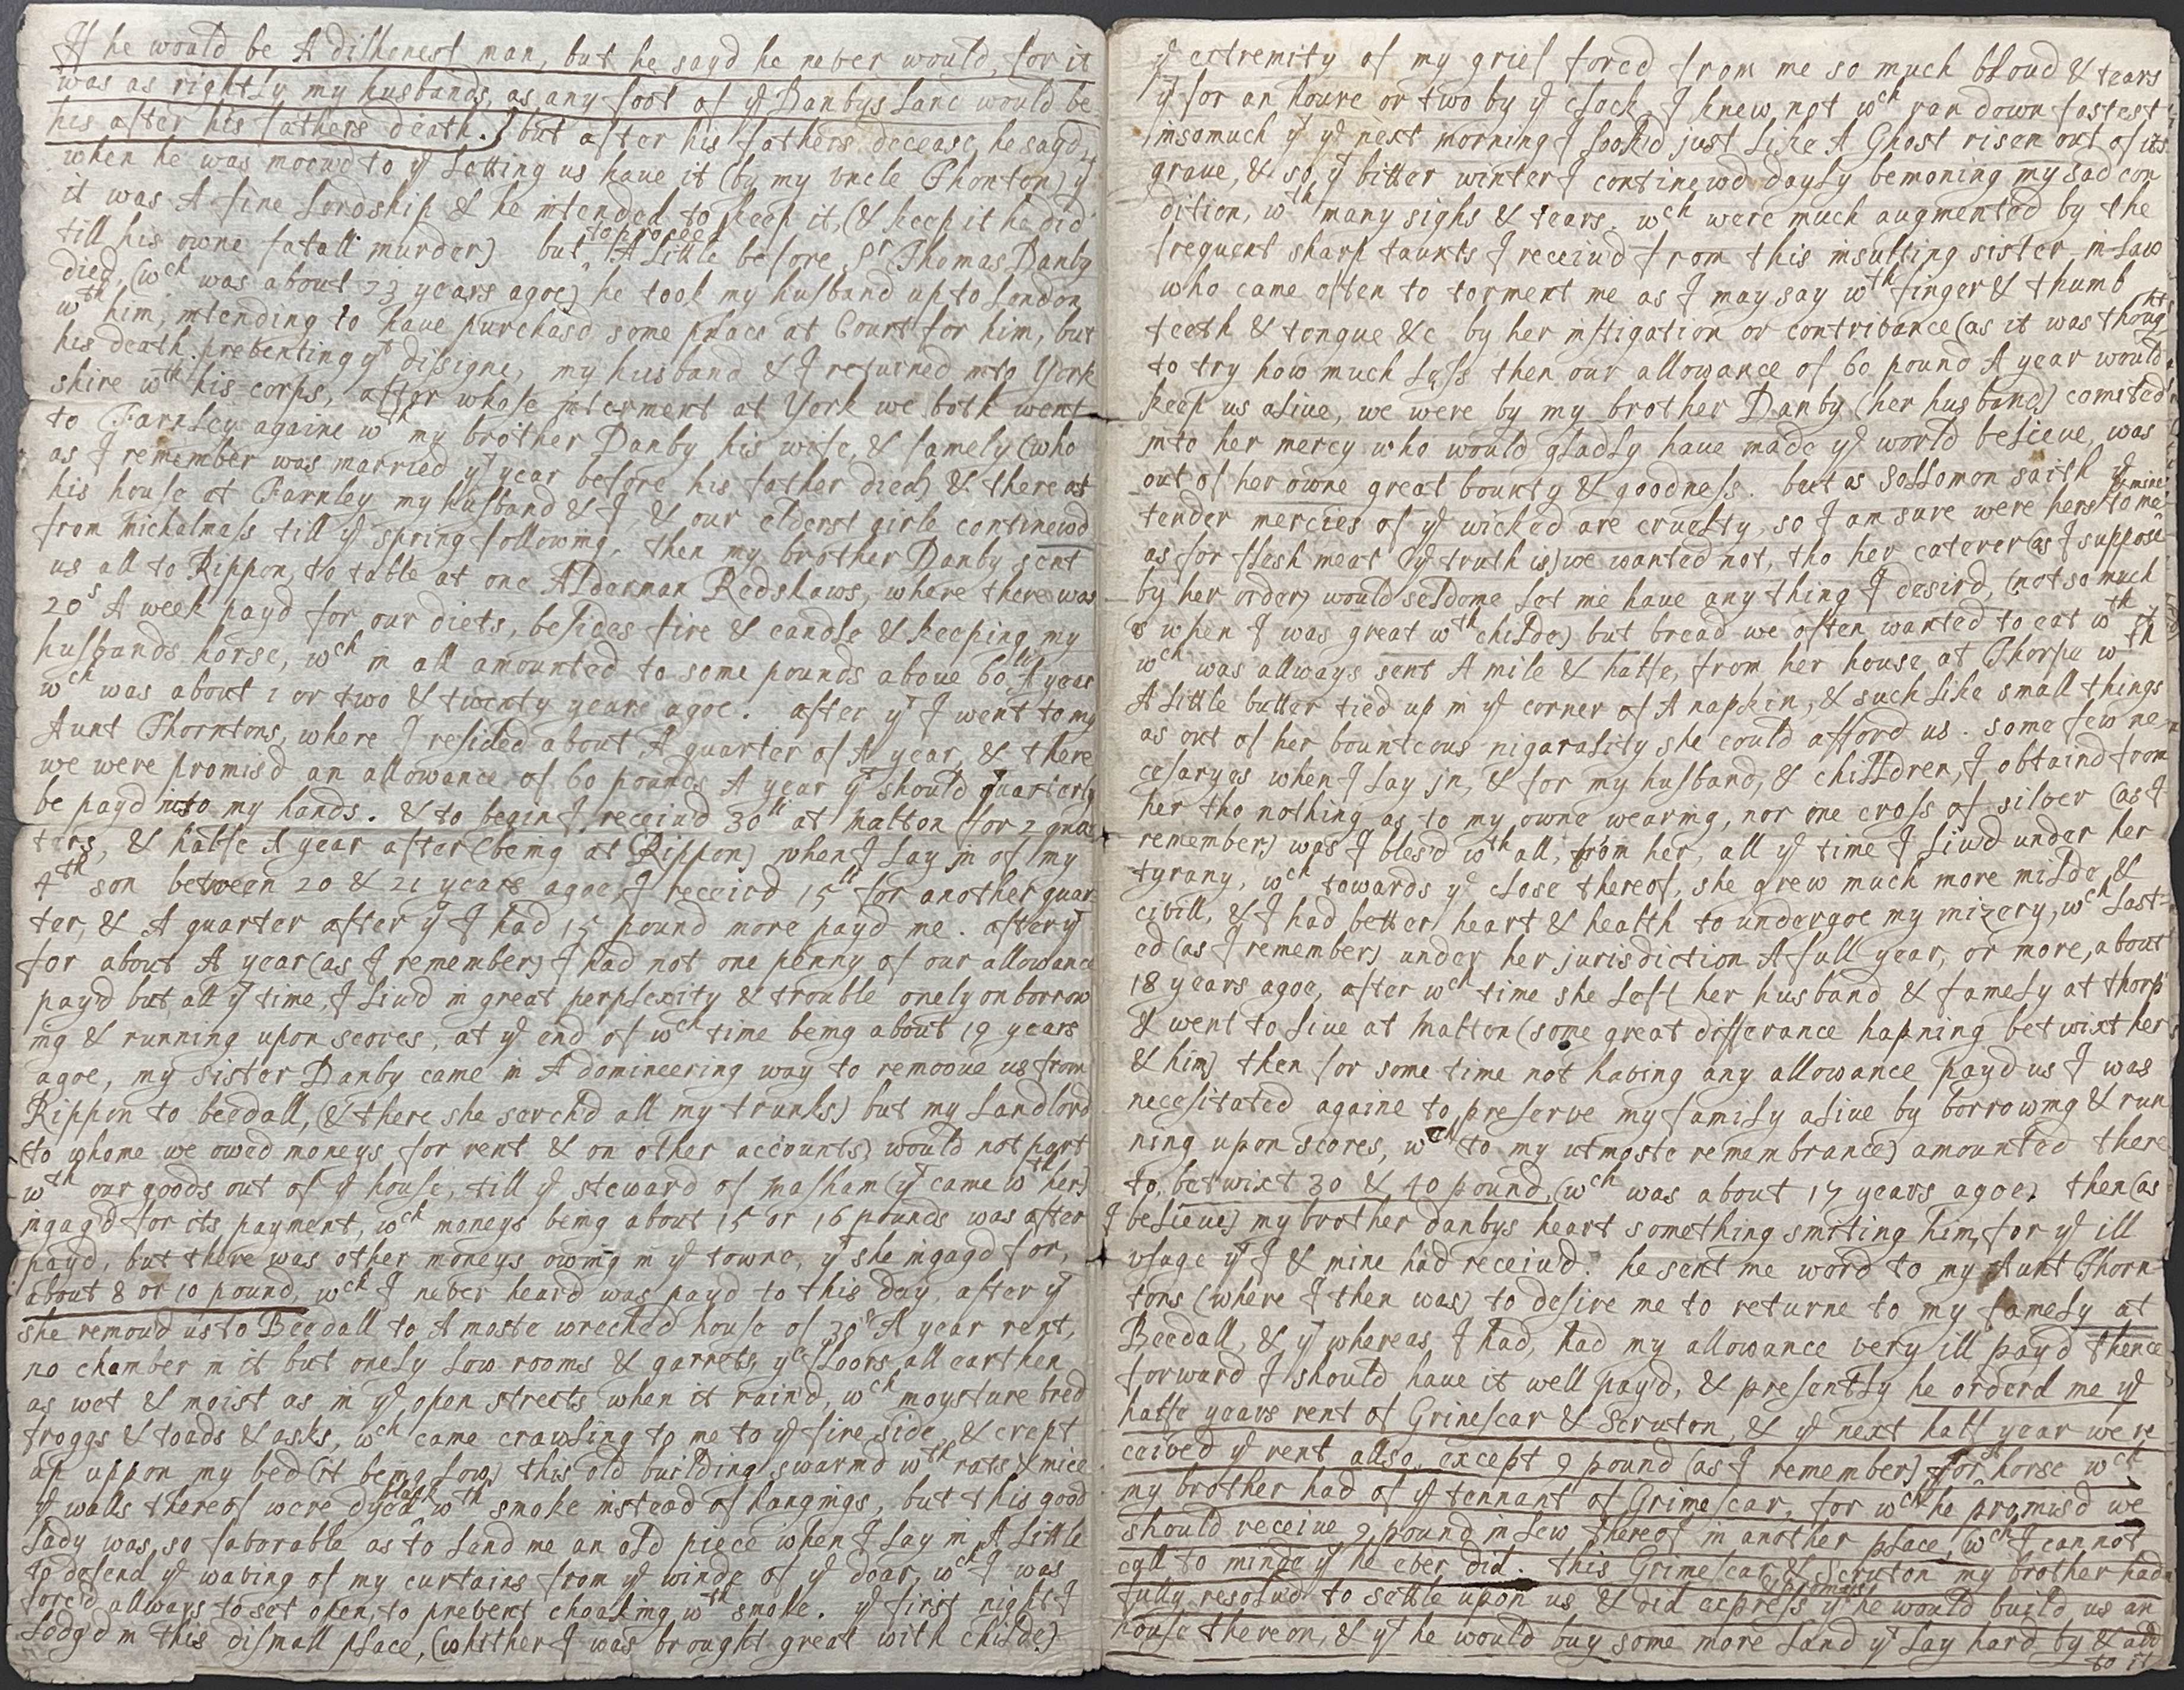 If he would be A dishonest man, but he sayd he never would, for it
was as rightly my husbands, as any foot of yᵉ Danbys Land would be
his after his fathers death. but after his fathers decease, he sayd,
when he was moewd to yᵉ Letting us haue it (by my vncle Thornton) yᵗ
it was A fine Lordship & he intended to keep it, (& keep it he did
till his owne fatall murder) but, to proceed A Little before Sʳ Thomas Danby
died, (wᶜʰ was about 23 years agoe) he took my husband up to London
wᵗʰ him, intending to have purchasd some place at Court for him, but
his death preventing yᵗ disigne, my husband & I returned into York
shire wᵗʰ his corps, after whose interment at York we both went
to Farnley againe wᵗʰ my brother Danby his wife, & famely (who
as I remember was married yᵗ year before his father died) & there at
his house at Farnley my husband & I, & our elderst girle continewd
from michalmass till yᵉ spring following, then my brother Danby sent
us all to Rippon, to table at one Alderman Redshaws, where there was
20ˢ A week payd for our diets, besides fire & candle & keeping my
husbands horse, wᶜʰ in all amounted to some pounds aboue 60ˡⁱ A year
wᶜʰ was about 1 or two & twenty yeare agoe. after yᵗ I went to my
Aunt Thorntons, where I resided about A quarter of A year, & there
we were promis'd an allowance of 60 pounds A year yᵗ should quarterly
be payd into my hands. & to begin I receiud 30ˡⁱ at Malton for 2 qua
ters, & halfe A year after (being at Rippon) when I Lay in of my
4ᵗʰ son between 20 & 21 years agoe, I receiud 15ˡⁱ for another quar-
ter, & A quarter after yᵗ I had 15 pound more payd me. after yᵗ
for about A year (as I remember) I had not one penny of our allowance
payd but all yᵗ time, I Liud in great perplexity & trouble onely on borrow
ing & running upon scores, at yᵉ end of wᶜʰ time being about 19 years
agoe, my sister Danby came in A domineering way to remooue us from
Rippon to beedall, (& there she serch'd all my trunks) but my Landlord
(to whome we owed moneys for rent & on other accounts) would not part
wᵗʰ our goods out of yᵉ house, till yᵉ steward of Masham (yᵗ came wᵗʰ her)
ingag'd for its payment, wᶜʰ moneys being about 15 or 16 pounds was after
payd, but there was other moneys owing in yᵉ towne, yᵗ she ingagd for,
about 8 or 10 pound, wᶜʰ I never heard was payd to this day, after yᵗ
she remoud us to Beedall to A moste wreched house of 30ˢ A year rent,
no chamber in it but onely Low rooms & garrets, yᵉ floors all earthen
as wet & moist as in yᵉ open streets when it rain'd, wᶜʰ moysture bred
froggs & toads & asks, wᶜʰ came crawling to me to yᵉ fire side, & crept
up uppon my bed (it being Low) this old building swarmd wᵗʰ rats & mice
yᵉ walls thereof were dyed black wᵗʰ smoke instead of hangings, but this good
Lady was, so faborable as to Lend me an old piece when I Lay in A Little
to defend yᵉ waving of my curtains from yᵉ winde of yᵉ doar, wᶜʰ I was
forc'd allways to set open, to prevent choaking wᵗʰ smoke. yᵉ first night I
Lodg'd in this dismall place, (whither I was brought great with childe)
yᵉ extremity of my grief forcd from me so much bloud & tears
yᵗ for an houre or two by yᵉ clock, I knew not wᶜʰ ran down fastest
insomuch yᵗ yᵉ next morning I Look'd just Like A Ghost risen out of its
graue, & so, yᵗ bitter winter I continewd dayly bemoning my sad con
dition, wᵗʰ many sighs & tears. wᶜʰ were much augmented by the
frequent sharp taunts I receiud from this insulting sister in-Law
who came often to torment me as I may say wᵗʰ finger & thumb
teeth & tongue &c by her instigation or contrivance (as it was thought
to try how much Less then our allowance of 60 pound A year would
keep us alive, we were by my brother Danby (her husband) comited
into her mercy who would gladly have made yᵉ world believe, was
out of her owne great bounty & goodness. but as Sollomon saith yᵉ
tender mercies of yᵉ wicked are cruelty, so I am sure were hers to me & mine
as for flesh meat (yᵉ truth is) we wanted not, tho her caterer (as I suppose
by her order) would seldome Let me have any thing I desird, (not so much
as when I was great wᵗʰ childe) but bread we often wanted to eat wᵗʰ it
wᶜʰ was allways sent A mile & halfe, from her house at Thorpe wᵗʰ
A Little butter tied up in yᵉ corner of A napkin, & such like small things
as out of her bounteous nigarality she could afford us. some few ne-
cesaryes when I Lay in, & for my husband, & chilldren, I obtaind from
her tho nothing as to my owne wearing, nor one cross of silver (as I
remember) was I bles'd wᵗʰ all, from her, all yᵉ time I Liud under her
tyrany, wᶜʰ towards yᵉ close thereof, she grew much more milde &
civill, & I had better heart & health to undergoe my mizery, wᶜʰ Last-
ed (as I remember) under her jurisdiction A full year, or more, about
18 years agoe, after wᶜʰ time she Left her husband & famely at thorp
& went to Live at Malton (some great differance hapning betwixt her
& him) then for some time not having any allowance payd us I was
necesitated againe to preserve my family alive by borrowing & run
ning upon scores, wᶜʰ (to my utmoste remembrance) amounted there
to, betwixt 30 & 40 pound, (wᶜʰ was about 17 years agoe) then (as
I believe) my brother danbys heart something smiting him, for yᵉ ill
vsage yᵗ I & mine had receiud. he sent me word to my Aunt Thorn-
tons (where I then was) to desire me to returne to my famely at
Beedall, & yᵗ whereas I had, had my allowance very ill payd thence
forward I should have it well pay'd, & presently he orderd me yᵉ
halfe years rent of Grimescar & Scruton, & yᵉ next half year we re
ceived yᵉ rent allso, except 9 pound (as I remember) for A horse wᶜʰ
my brother had of yᵉ tennant of Grimescar, for wᶜʰ he promis'd we
should receive 9 pound in Lew thereof in another place, (wᶜʰ I cannot
call to minde yᵗ he ever did. this Grimescar & Scruton my brother had
fully resolud to settle upon us & did express & promise yᵗ he would build us an
house thereon, & yᵗ he would buy some more Land yᵗ Lay hard by & add
to it